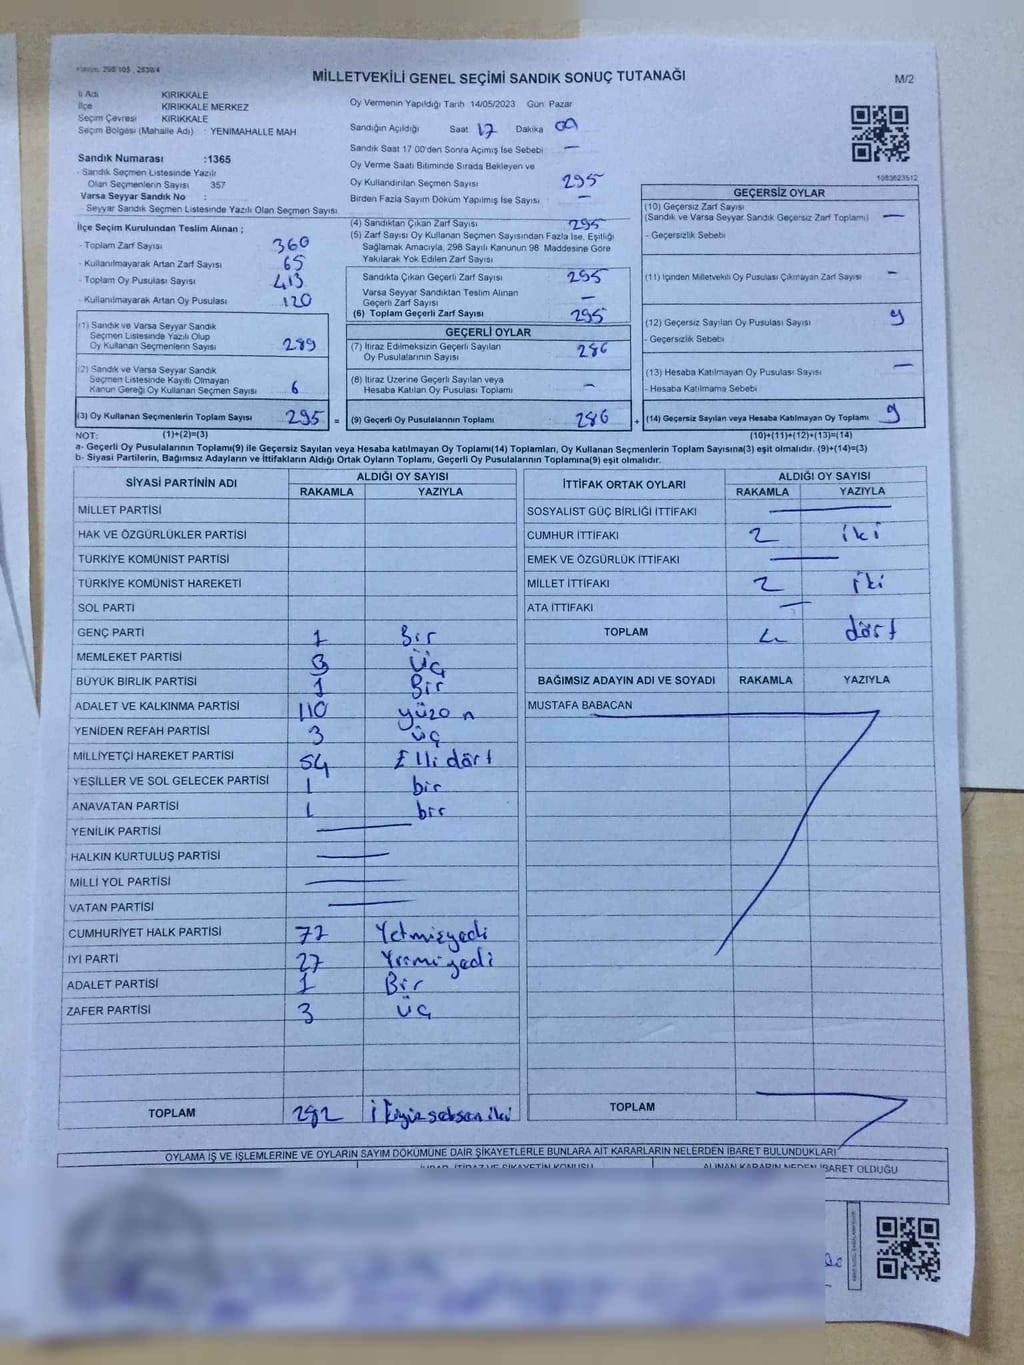 MİLLETVEKİLİ GENEL SEÇİMİ SANDIK SONUÇ TUTANAĞI
M/2
İl Adı KIRIKKALE
İlçe KIRIKKALE MERKEZ
Seçim Çevresi KIRIKKALE
Seçim Bölgesi (Mahalle Adı) : YENIMAHALLE MAH
Sandık Numarası :1365
- Sandık Seçmen Listesinde Yazılı
Olan Seçmenlerin Sayısı 357
Varsa Seyyar Sandık No :
- Seyyar Sandık Seçmen Listesinde Yazılı Olan Seçmen Sayısı
İlçe Seçim Kurulundan Teslim Alınan ;
- Toplam Zarf Sayısı 360
- Kullanılmayarak Artan Zarf Sayısı 65
- Toplam Oy Pusulası Sayısı 413
- Kullanılmayarak Artan Oy Pusulası 120
(1) Sandık ve Varsa Seyyar Sandık
Seçmen Listesinde Yazılı Olup
Oy Kullanan Seçmenlerin Sayısı 289
(2) Sandık ve Varsa Seyyar Sandık
Seçmen Listesinde Kayıtlı Olmayan
Kanun Gereği Oy Kullanan Seçmen Sayısı 6
(3) Oy Kullanan Seçmenlerin Toplam Sayısı 295 =
Oy Vermenin Yapıldığı Tarih 14/05/2023 Gün Pazar
Sandığın Açıldığı Saat 17 Dakika 00
Sandık Saat 17 00'den Sonra Açımış İse Sebebi —
Oy Verme Saati Bitiminde Sırada Bekleyen ve
Oy Kullandırılan Seçmen Sayısı 295
Birden Fazla Sayım Döküm Yapılmış İse Sayısı —
(4) Sandıktan Çıkan Zarf Sayısı 295
(5) Zarf Sayısı Oy Kullanan Seçmen Sayısından Fazla İse, Eşitliği
Sağlamak Amacıyla, 298 Sayılı Kanunun 98. Maddesine Göre
Yakılarak Yok Edilen Zarf Sayısı
Sandıkta Çıkan Geçerli Zarf Sayısı 295
Varsa Seyyar Sandıktan Teslim Alınan
Geçerli Zarf Sayısı —
(6) Toplam Geçerli Zarf Sayısı 295
GEÇERLİ OYLAR
(7) İtiraz Edilmeksizin Geçerli Sayılan
Oy Pusulalarının Sayısı 286
(8) İtiraz Üzerine Geçerli Sayılan veya
Hesaba Katılan Oy Pusulası Toplamı —
(9) Geçerli Oy Pusulalarının Toplamı 286 +
1083623512
GEÇERSİZ OYLAR
(10) Geçersiz Zarf Sayısı
(Sandık ve Varsa Seyyar Sandık Geçersiz Zarf Toplamı) —
- Geçersizlik Sebebi
(11) İçinden Milletvekili Oy Pusulası Çıkmayan Zarf Sayısı —
(12) Geçersiz Sayılan Oy Pusulası Sayısı 9
- Geçersizlik Sebebi
(13) Hesaba Katılmayan Oy Pusulası Sayısı —
- Hesaba Katılmama Sebebi
(14) Geçersiz Sayılan veya Hesaba Katılmayan Oy Toplamı 9
NOT: (1)+(2)=(3) (10)+(11)+(12)+(13)=(14)
a- Geçerli Oy Pusulalarının Toplamı(9) ile Geçersiz Sayılan veya Hesaba katılmayan Oy Toplamı(14) Toplamları, Oy Kullanan Seçmenlerin Toplam Sayısına(3) eşit olmalıdır. (9)+(14)=(3)
b- Siyasi Partilerin, Bağımsız Adayların ve İttifakların Aldığı Ortak Oyların Toplamı, Geçerli Oy Pusulalarının Toplamına(9) eşit olmalıdır.
SİYASİ PARTİNİN ADI ALDIĞI OY SAYISI
RAKAMLA YAZIYLA
MİLLET PARTİSİ
HAK VE ÖZGÜRLÜKLER PARTİSİ
TÜRKİYE KOMÜNİST PARTİSİ
TÜRKİYE KOMÜNİST HAREKETİ
SOL PARTİ
GENÇ PARTİ 1 Bir
MEMLEKET PARTİSİ 3 Üç
BÜYÜK BİRLİK PARTİSİ 1 Bir
ADALET VE KALKINMA PARTİSİ 110 yüzon
YENİDEN REFAH PARTİSİ 3 üç
MİLLİYETÇİ HAREKET PARTİSİ 54 Elli dört
YEŞİLLER VE SOL GELECEK PARTİSİ 1 bir
ANAVATAN PARTİSİ 1 bir
YENİLİK PARTİSİ —
HALKIN KURTULUŞ PARTİSİ —
MİLLİ YOL PARTİSİ —
VATAN PARTİSİ —
CUMHURİYET HALK PARTİSİ 77 Yetmişyedi
İYİ PARTİ 27 Yirmiyedi
ADALET PARTİSİ 1 Bir
ZAFER PARTİSİ 3 Üç
TOPLAM 282 İkiyüzseksen iki
İTTİFAK ORTAK OYLARI ALDIĞI OY SAYISI
RAKAMLA YAZIYLA
SOSYALİST GÜÇ BİRLİĞİ İTTİFAKI —
CUMHUR İTTİFAKI 2 iki
EMEK VE ÖZGÜRLÜK İTTİFAKI —
MİLLET İTTİFAKI 2 iki
ATA İTTİFAKI —
TOPLAM 4 dört
BAĞIMSIZ ADAYIN ADI VE SOYADI RAKAMLA YAZIYLA
MUSTAFA BABACAN
TOPLAM
OYLAMA İŞ VE İŞLEMLERİNE VE OYLARIN SAYIM DÖKÜMÜNE DAİR ŞİKAYETLERLE BUNLARA AİT KARARLARIN NELERDEN İBARET BULUNDUKLARI
ALINAN KARARIN NEDEN İBARET OLDUĞU